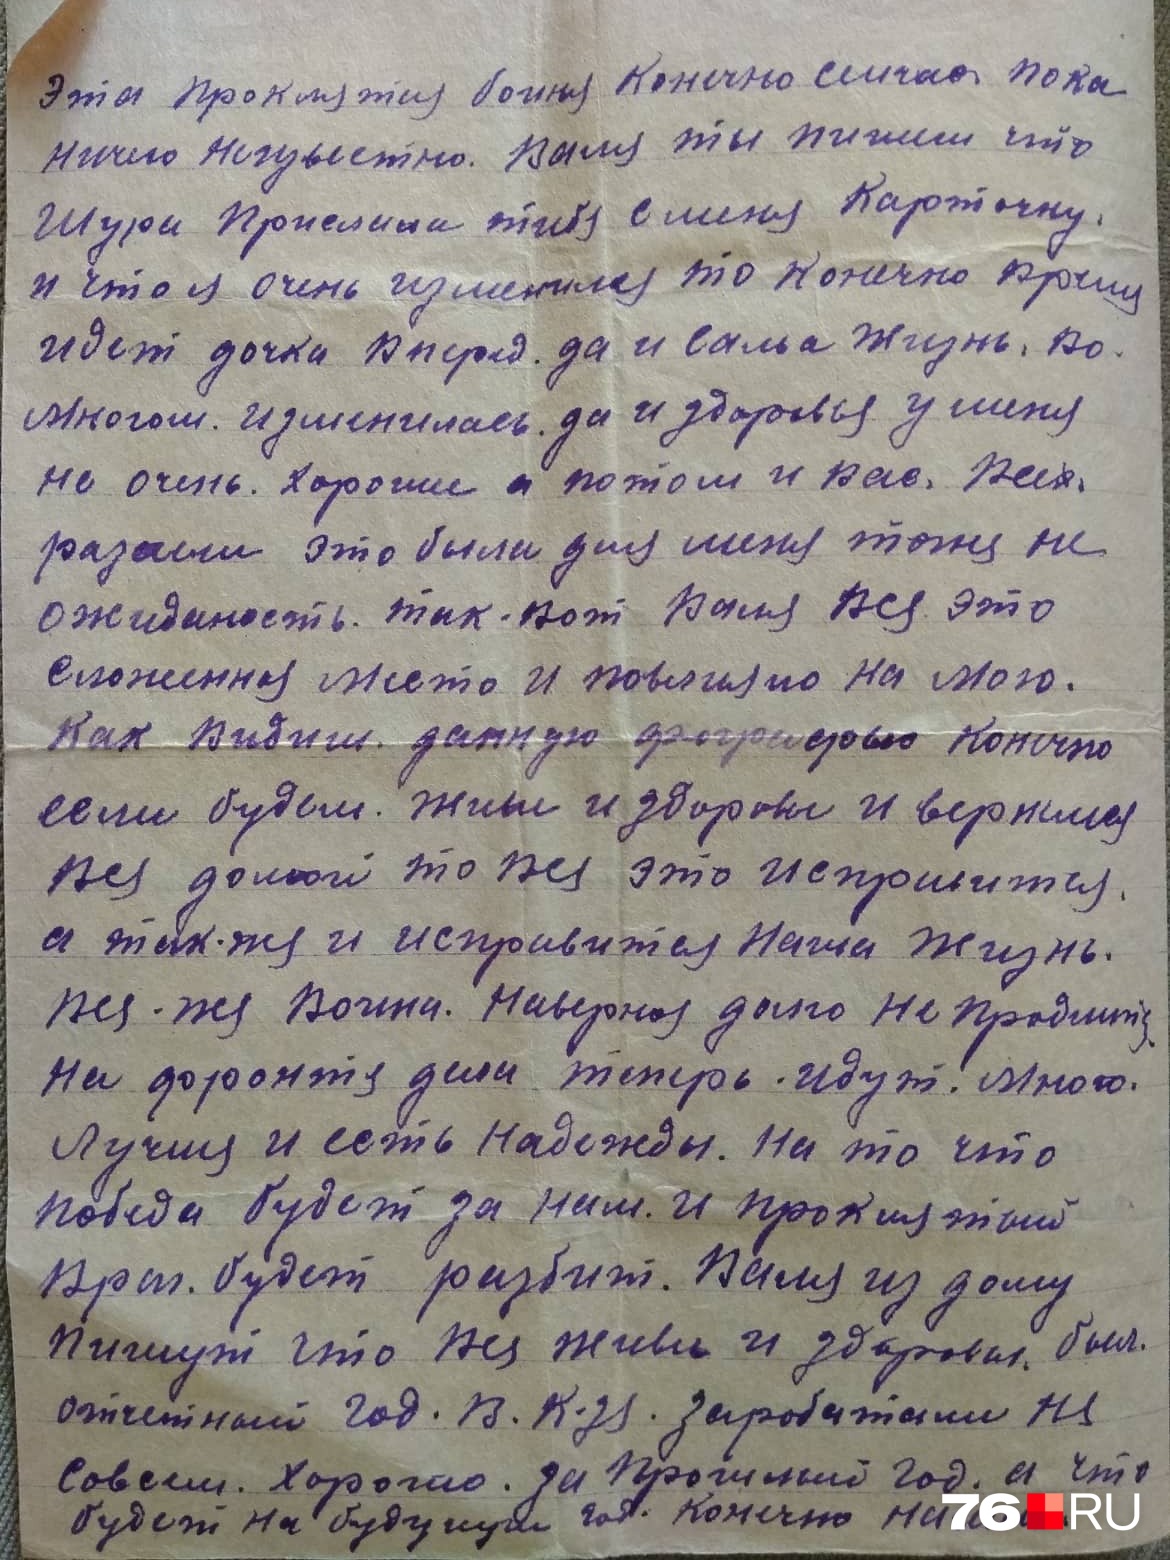 Эта Проклятия воина Конечно Сеичас. пока
ничего Неизвестно. Валя ты пишеш что
Шура Прислала тибя с меня Карточку.
и что я очень изменился то Конечно Время
идет дочка Вперед. да и Сама Жизнь. Во.
Многом. изменилась. да и здоровья у меня
не очень. Хороши а потом и вас. Всех.
разами это была для меня тожа не
ожиданость. так-вот Валя Вся это
сложенная место и повлияло на Мою.
Как Видиш. данную Конечно
если будем. живы и здоровы и вернемся
Вся домой то Вся это исправится.
а так-жя и исправится Наша Жизнь.
Вся-жя Воина. Наверная долго Не Продлится
На форонтя дела теперь. идут. Много.
Лучшя и есть Надежды. На то что
победа будет за Нам. и проклятый
Враг. будет разбит. Валя из дому
пишут что Вся живы и здоровы. был.
отчетный год. В. К-зя. заработали Ня
совсем. Хорошо. за Прошлый год. а что
будет на будущий год. Конечно
76.RU